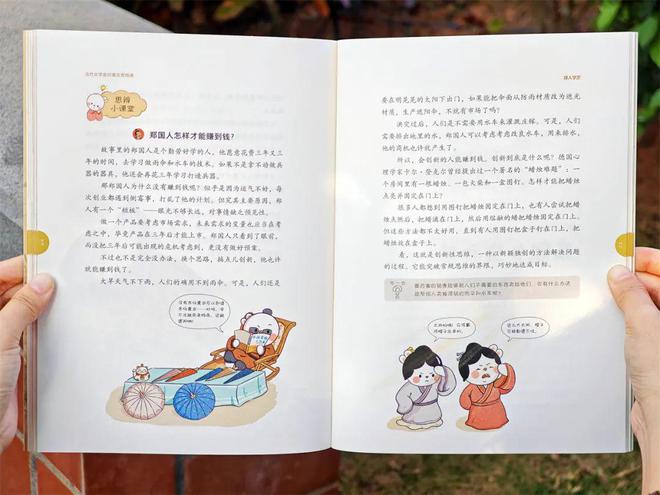 思辨
小课堂
郑国人怎样才能赚到钱?
故事里的郑国人是个勤劳好学的人,他愿意花费三年又三
年的时间,去学习做雨伞和水车的技术。如果不是拿不动做兵
器的器具,他还会再花三年学习打造兵器。
那郑国人为什么没有赚到钱呢?似乎是因为运气不好,每
次创业都遇到倒霉事,打乱了他的计划。但究其主要原因,郑
人有一个“短板”——眼光不够长远,对事情缺乏预见性。
做一个产品要考虑市场需求,未来需求的变量也应当在考
虑之中,毕竟产品在三年后才能上市。郑国人只看到了眼前,
而没把三年后可能出现的危机考虑到,更没有做好预案。
不过也不是完全没办法,换个思路,搞点儿创新,他也许
就能赚到钱了。
大旱天气不下雨,人们的确用不到雨伞。可是,人们还是
要在明晃晃的太阳下出门,如果能把伞面从防雨材质改为遮光
材质,生产遮阳伞,不就有市场了吗?
洪灾过后,人们是不需要用水车来灌溉庄稼。可是,人们
需要排出地里的水,郑国人可以考虑考虑改良水车,用来排水,
他的商机也许就产生了。
所以,会创新的人能赚到钱。创新到底是什么呢?德国心
理学家卡尔·登克尔曾经提出过一个著名的“蜡烛难题”:一
个房间里有一根蜡烛、一包火柴和一盒图钉。怎样才能把蜡烛
点亮并固定在门上?
很多人都想到用图钉把蜡烛固定在门上,也有人尝试把蜡
烛点燃后,把蜡滴在门上,然后用熔融的蜡把蜡烛固定在门上。
但这些方法都不太好用,直到有人用图钉把盒子钉在门上,把
蜡烛放在盒子上。
看,这就是创新性思维,一种以新颖独创的方法解决问题
的过程。它能突破常规思维的界限,巧妙地达成目标。